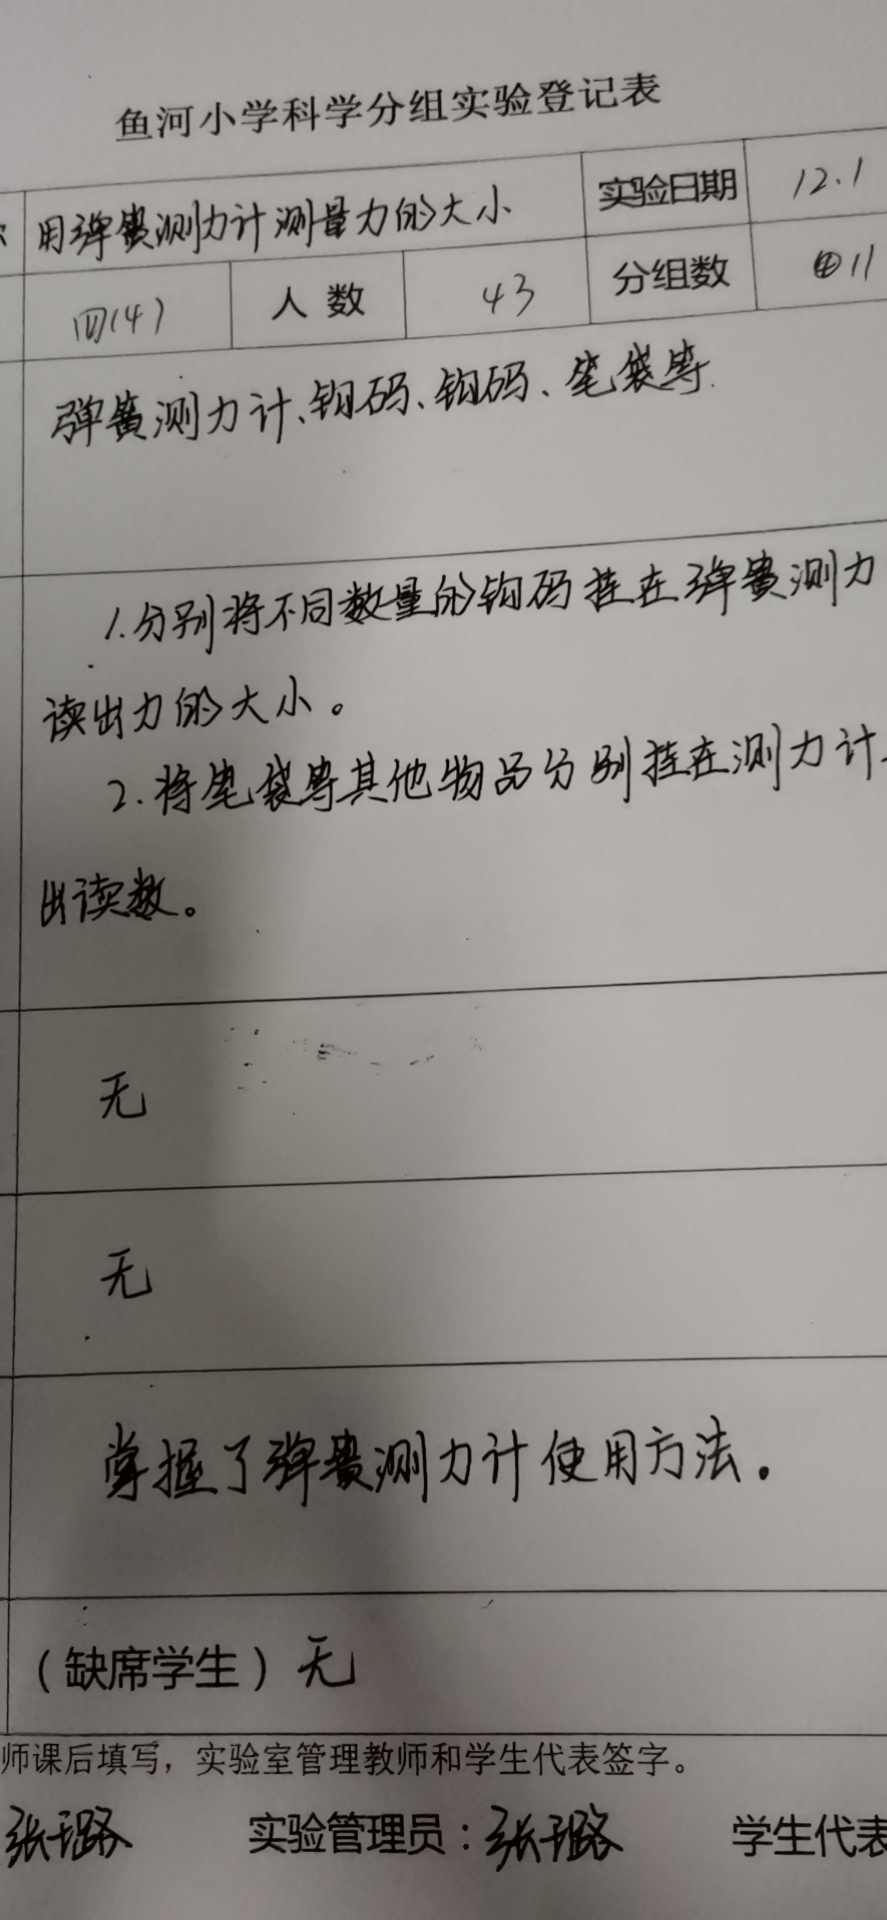 鱼河小学科学分组实验登记表
用弹簧测力计测量力的大小 实验日期 12.1
四(4) 人数 43 分组数 11
弹簧测力计、钩码、钩码、笔袋等.
1.分别将不同数量的钩码挂在弹簧测力
读出力的大小。
2.将笔袋等其他物品分别挂在测力计
出读数。
无
无
掌握了弹簧测力计使用方法。
(缺席学生) 无
师课后填写，实验室管理教师和学生代表签字。
张璐 实验管理员：张璐 学生代表